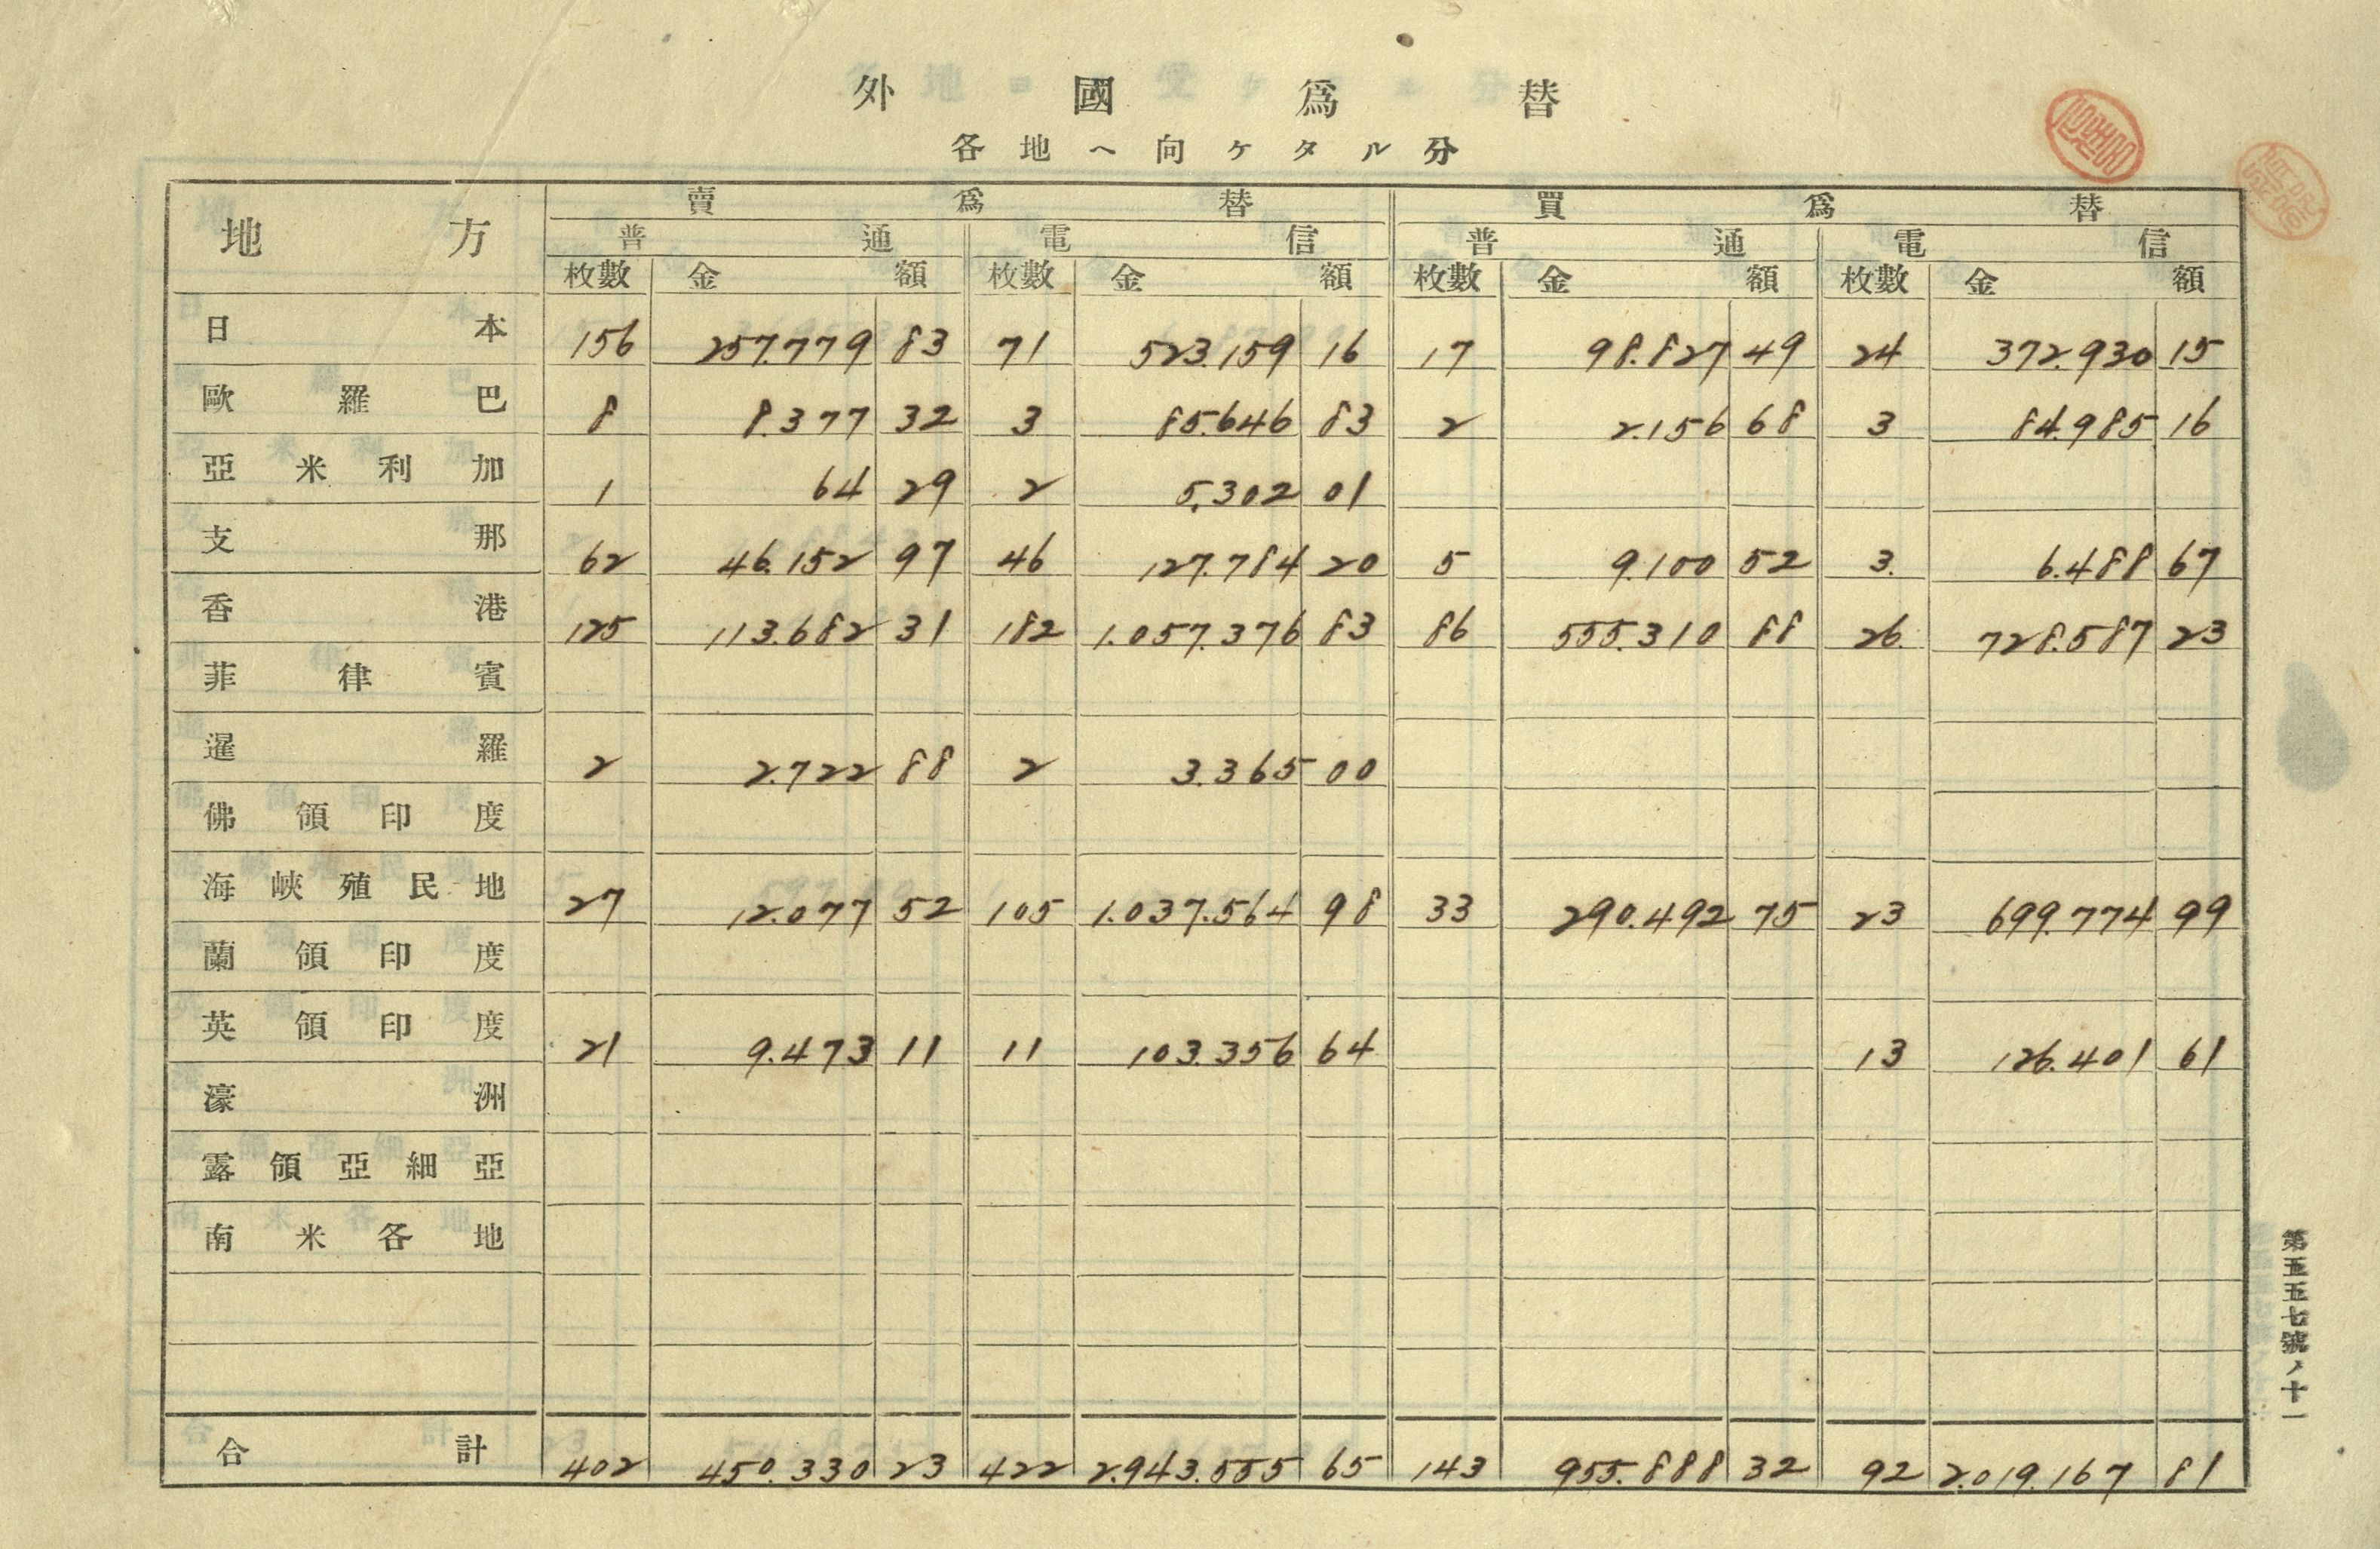 外國爲替
各地ヘ向ケタル分
地方 賣爲替 買爲替
普通 電信 普通 電信
枚數 金額 枚數 金額 枚數 金額 枚數 金額
日本 156 257.779 83 71 523.159 16 17 98.827 49 24 372.930 15
歐羅巴 8 8.377 32 3 85.646 83 2 2.156 68 3 84.985 16
亞米利加 1 64 29 2 5.302 01
支那 62 46.152 97 46 127.784 20 5 9.100 52 3. 6.488 67
香港 125 113.682 31 182 1.057.376 83 86 555.310 88 26. 728.587 23
菲律賓
暹羅 2 2.722 88 2 3.365 00
佛領印度
海峽殖民地 27 12.077 52 105 1.037.564 98 33 290.492 75 23 699.774 99
蘭領印度
英領印度 21 9.473 11 11 103.356 64 13 126.401 61
濠洲
露領亞細亞
南米各地
合計 402 450.330 23 422 2.943.555 65 143 955.888 32 92 2.019.167 81
第五五七號ノ十一